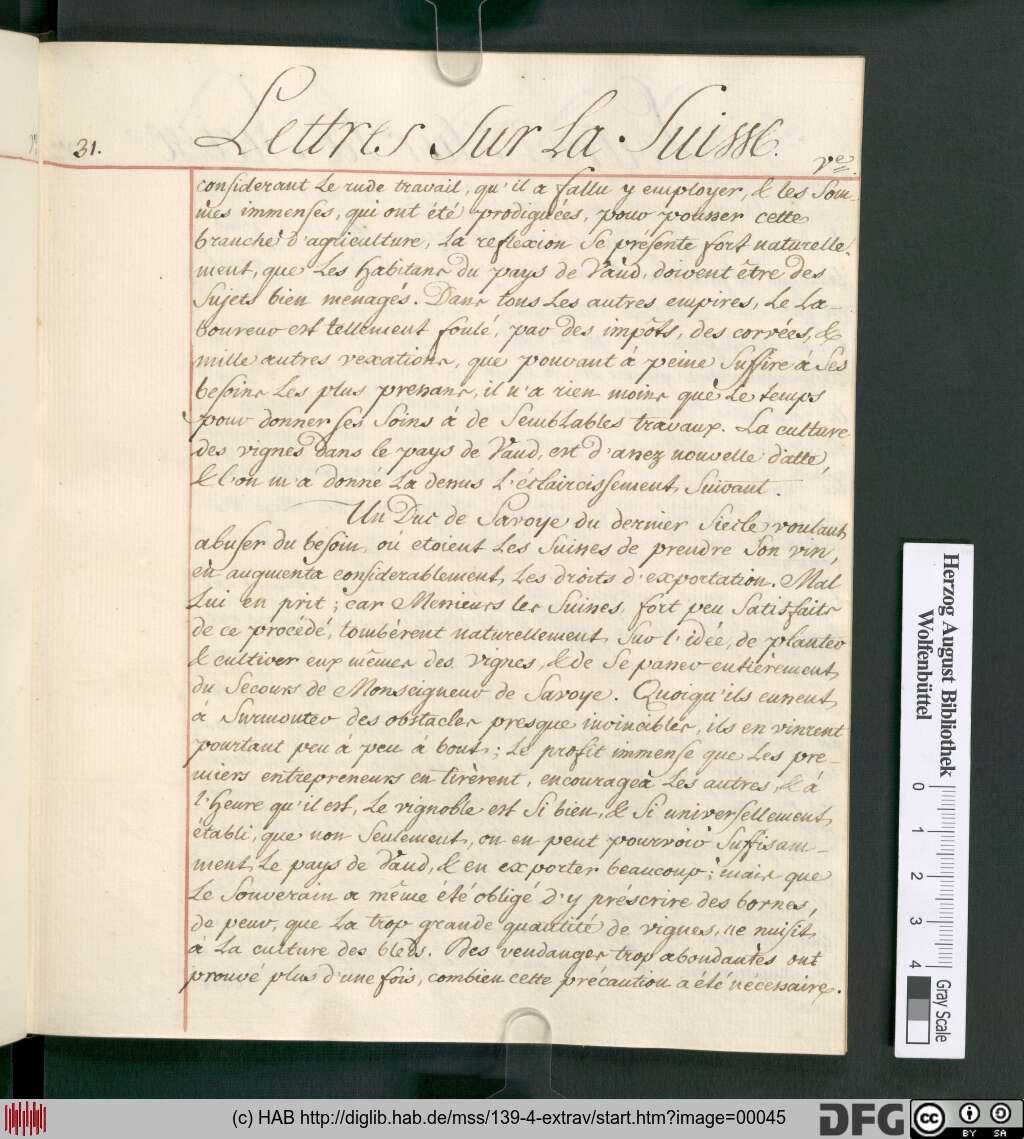 31.
Lettres sur la Suisse.
Vᵉ.
considerant le rude travail, qu'il a fallu y employer, & les som-
mes immenses, qui ont été prodiguées, pour pousser cette
branche d'agriculture, la reflexion se présente fort naturelle-
ment, que les habitans du pays de Vaud, doivent être des
Sujets bien menagés. Dans tous les autres empires, le la-
boureur est tellement foulé, par des impôts, des corvées, &
mille autres vexations, que pouvant à peine suffire à ses
besoins les plus pressans, il n'a rien moins que le temps
pour donner ses soins à de semblables travaux. La culture
des vignes dans le pays de Vaud, est d'assez nouvelle datte,
& l'on m'a donné la dessus l'éclaircissement suivant.
Un Duc de Savoye du dernier Siecle voulant
abuser du besoin, où étoient les Suisses de prendre son vin,
en augmenta considerablement les droits d'exportation. Mal
lui en prit; car Messieurs les Suisses fort peu satisfaits
de ce procédé, tombèrent naturellement sur l'idée, de planter
& cultiver eux mêmes des vignes, & de se passer entièrement
du secours de Monseigneur de Savoye. Quoiqu'ils eussent
à surmonter des obstacles presque invincibles, ils en vinrent
pourtant peu à peu à bout; le profit immense que les pre-
miers entrepreneurs en tirèrent, encouragea les autres, & à
l'heure qu'il est, le vignoble est si bien, & si universellement
établi, que non seulement, on en peut pourvoir suffisam-
ment le pays de Vaud, & en exporter beaucoup; mais que
le Souverain a même été obligé d'y préscrire des bornes,
de peur, que la trop grande quantité de vignes, ne nuisit
à la culture des bleds. Des vendanges trop abondantès ont
prouvé plus d'une fois, combien cette précaution a été nécessaire.
Herzog August Bibliothek
Wolfenbüttel
0 1 2 3 4
Gray Scale
(c) HAB http://diglib.hab.de/mss/139-4-extrav/start.htm?image=00045
DFG
CC BY SA